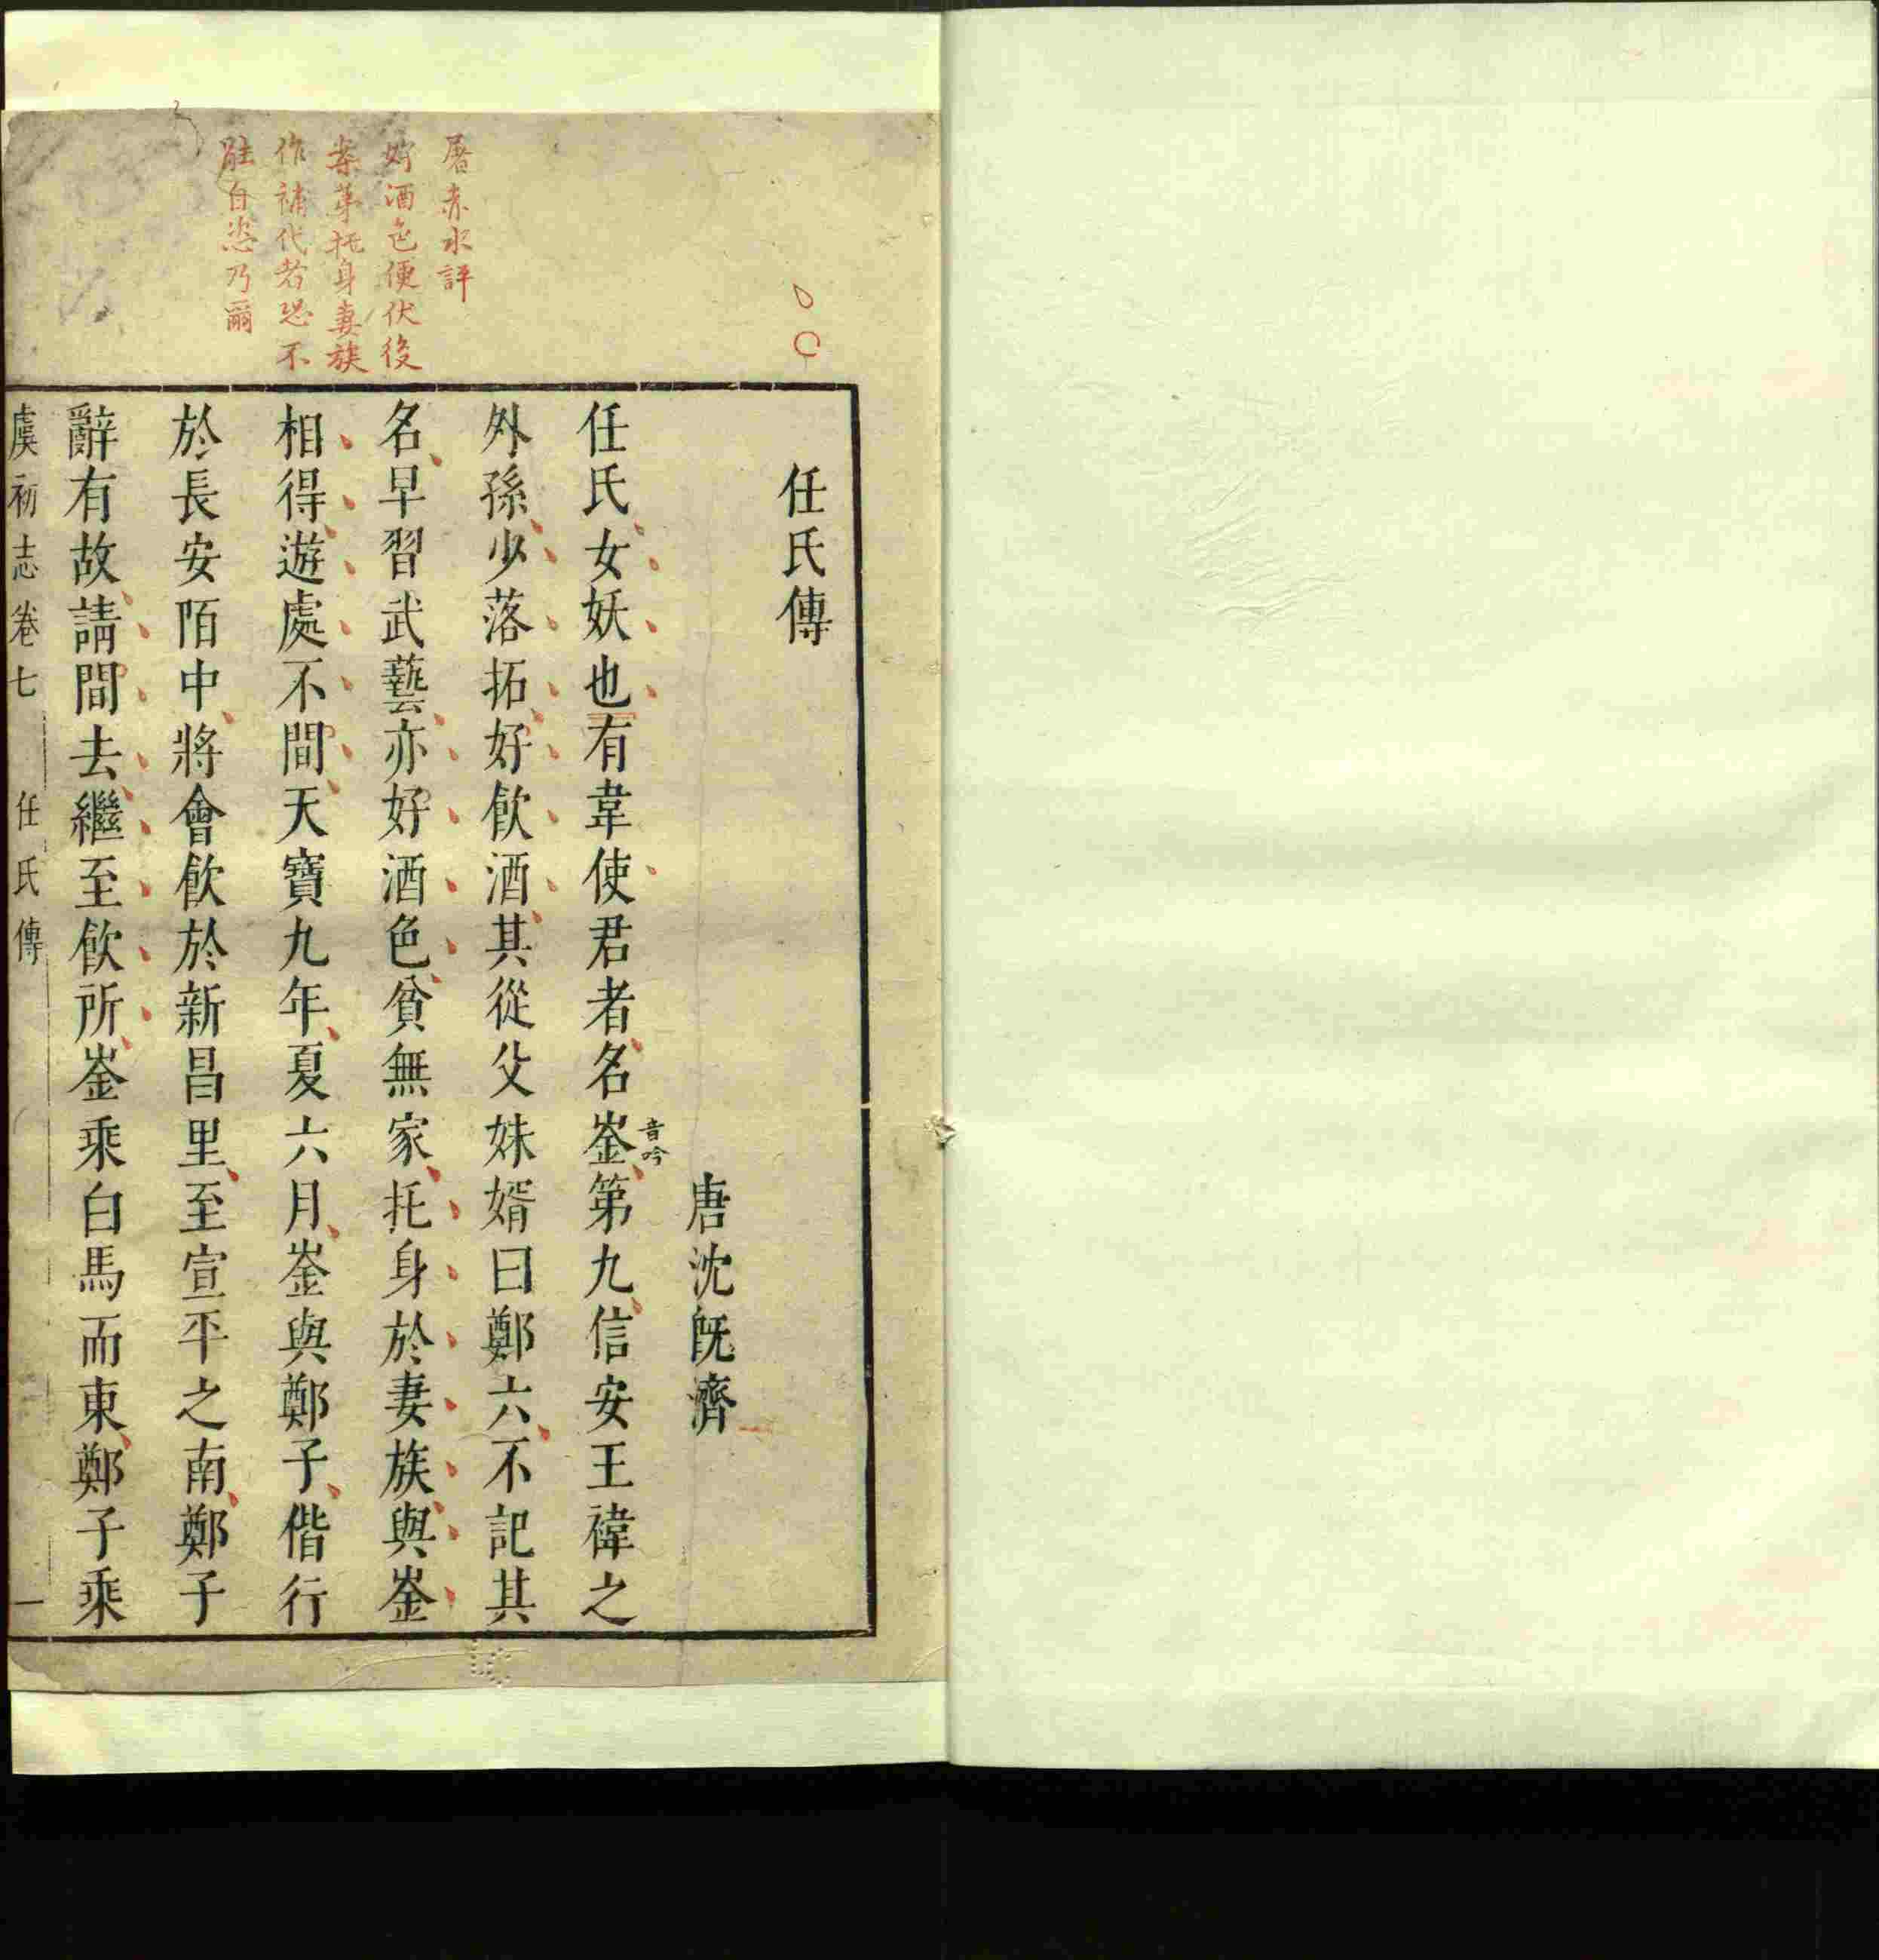 屠赤水評
好酒色便伏後
案華托身妻族
作補代者恐不
能自恣乃爾
任氏傳
唐沈旣濟
任氏女妖也有韋使君者名崟音吟第九信安王褘之
外孫少落拓好飮酒其從父妹婿曰鄭六不記其
名早習武藝亦好酒色貧無家托身於妻族與崟
相得遊處不間天寶九年夏六月崟與鄭子偕行
於長安陌中將會飮於新昌里至宣平之南鄭子
辭有故請間去繼至飮所崟乘白馬而東鄭子乘
虞初志卷七 任氏傳 一